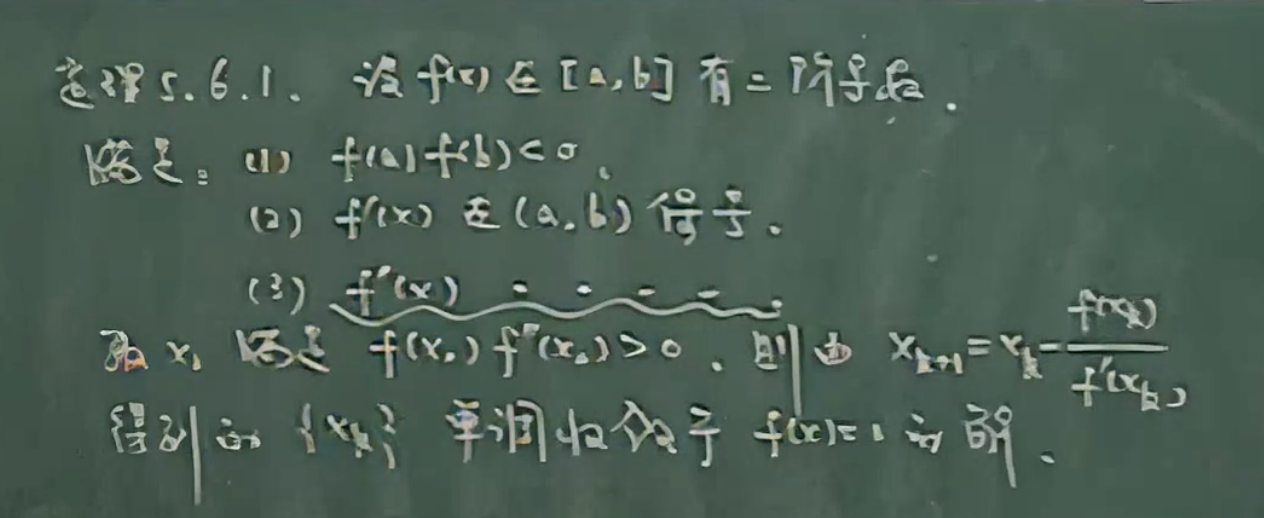 定理5.6.1. 设 f(x) 在 [a,b] 有二阶导数.
满足: (1) f(a)f(b)<0.
(2) f'(x) 在(a,b) 保号.
(3) f''(x) ·····
取 x₀ 满足 f(x₀)f''(x₀)>0. 则由 x_{k+1}=x_k-\frac{f(x_k)}{f'(x_k)}
得到的 {x_k} 单调收敛于 f(x)=0 的